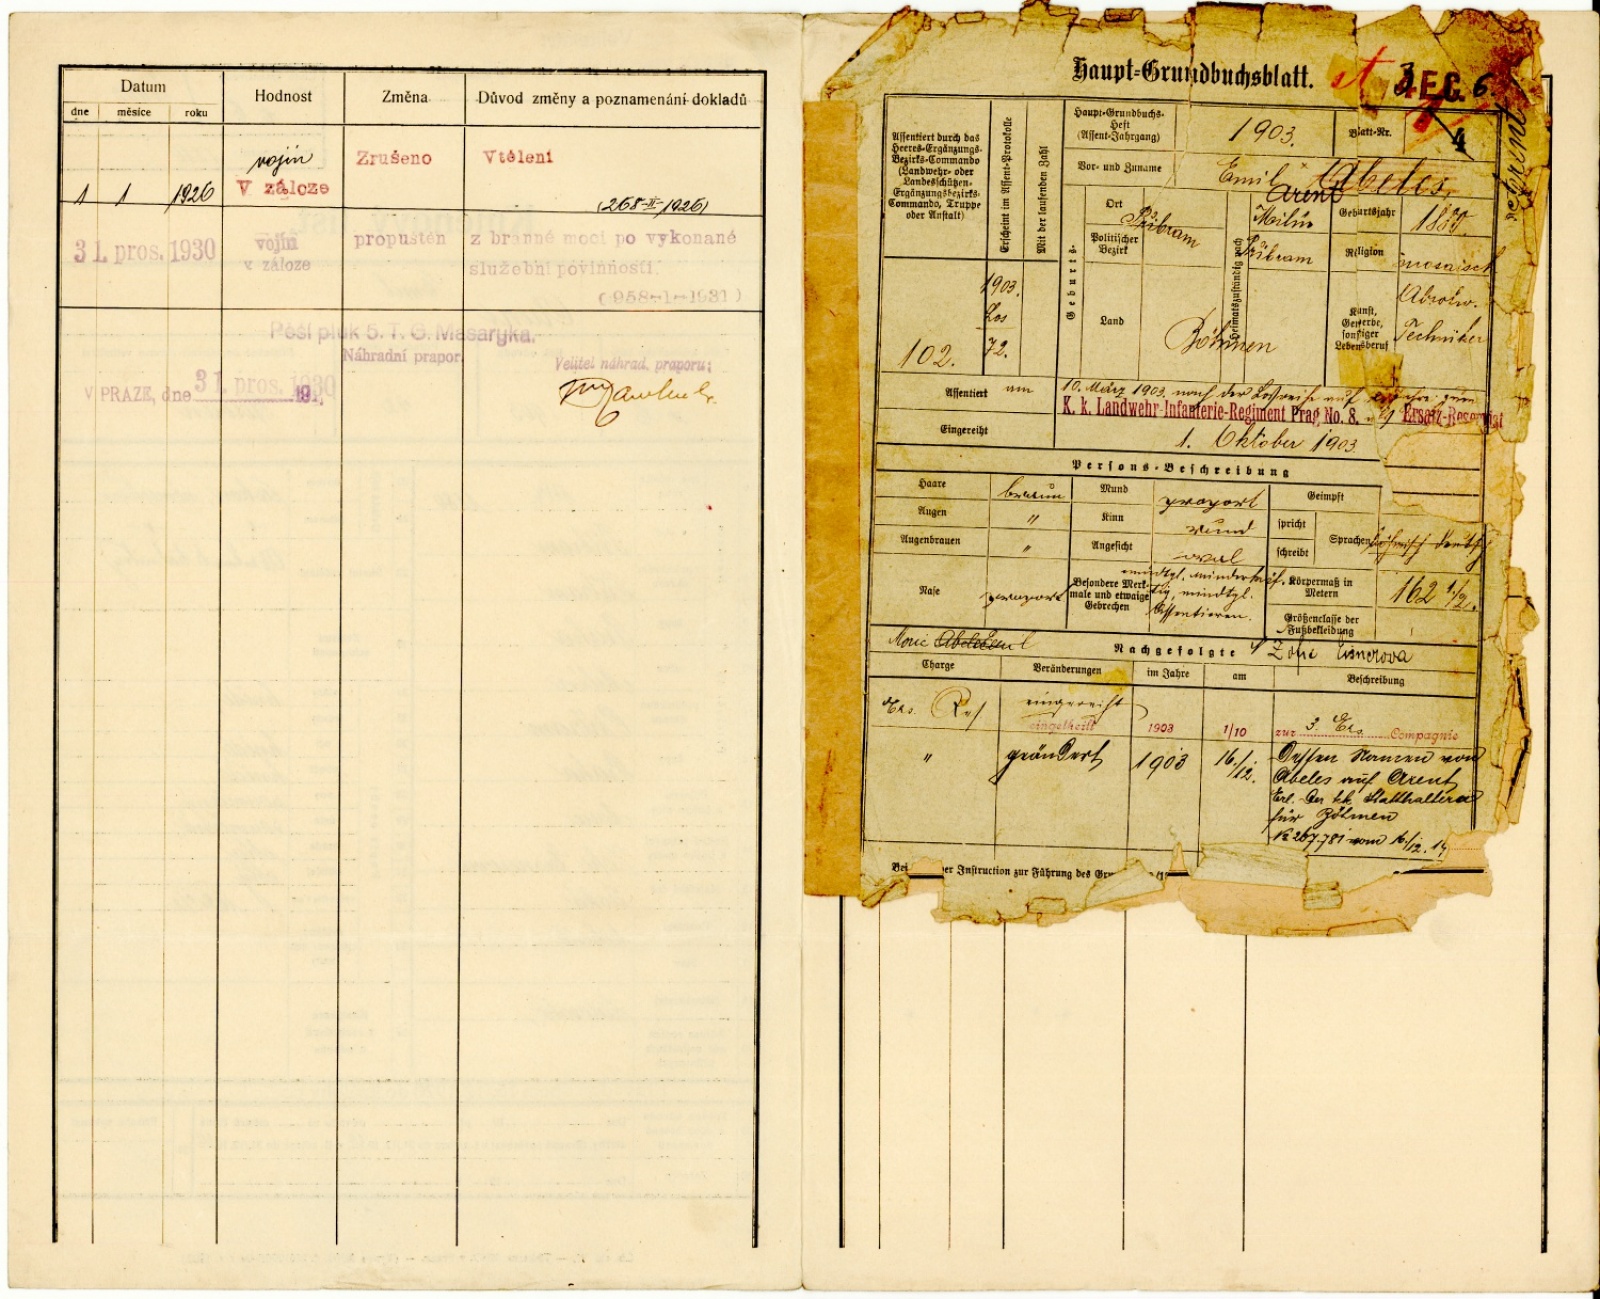 Datum
Hodnost
Změna
Důvod změny a poznamenání dokladů
dne
měsíce
roku
vojín
Zrušeno
Vtělení
1
1
1926
V záloze
(268-II-1926)
31. pros. 1930
vojín
v záloze
propuštěn
z branné moci po vykonané
služební povinnosti.
(958-1-1931)
Pěší pluk 5. T. G. Masaryka.
Náhradní prapor.
V PRAZE, dne 31. pros. 1930
19
Velitel náhrad. praporu:
Haupt-Grundbuchsblatt.
4
Arent
Assentiert durch das
Heeres-Ergänzungs-
Bezirks-Commando
(Landwehr- oder
Landesschützen-
Ergänzungsbezirks-
Commando, Truppe
oder Anstalt)
Erscheint im Assent-Protokolle
Mit der laufenden Zahl
Haupt-Grundbuchs-
Heft
(Assent-Jahrgang)
1903.
Blatt-Nr.
Vor- und Zuname
Emil Abeles.
Arent
Geburts-
Ort
Přibram
Politischer
Bezirk
Land
Böhmen
Heimatszuständig nach
Milín
Přibram
Geburtsjahr
Religion
mosaisch
Kunst,
Gewerbe,
sonstiger
Lebensberuf
Absolv.
Techniker
102.
1903.
Los
72.
Assentiert
am 10. März 1903, nach der Losreihe auf
K. k. Landwehr-Infanterie-Regiment Prag No. 8.
Ersatz-Reservist
Eingereiht
1. Oktober 1903.
Persons-Beschreibung
Haare
braun
Mund
proport
Geimpft
Augen
"
Kinn
rund
spricht
Augenbrauen
"
Angesicht
oval
schreibt
Sprachen
böhmisch deutsch
Nase
proport
Besondere Merk-
male und etwaige
Gebrechen
Körpermaß in
Metern
162 1/2.
Größenclasse der
Fußbekleidung
Nachgefolgte
Charge
Veränderungen
im Jahre
am
Beschreibung
Ers. Res
eingereiht
eingetheilt
1903
1/10
zur 3. Ers. Compagnie
"
geändert
1903
16./12.
Dessen Namen von
Abeles auf Arent
Erl. der kk Statthalterei
für Böhmen
Instruction zur Führung des